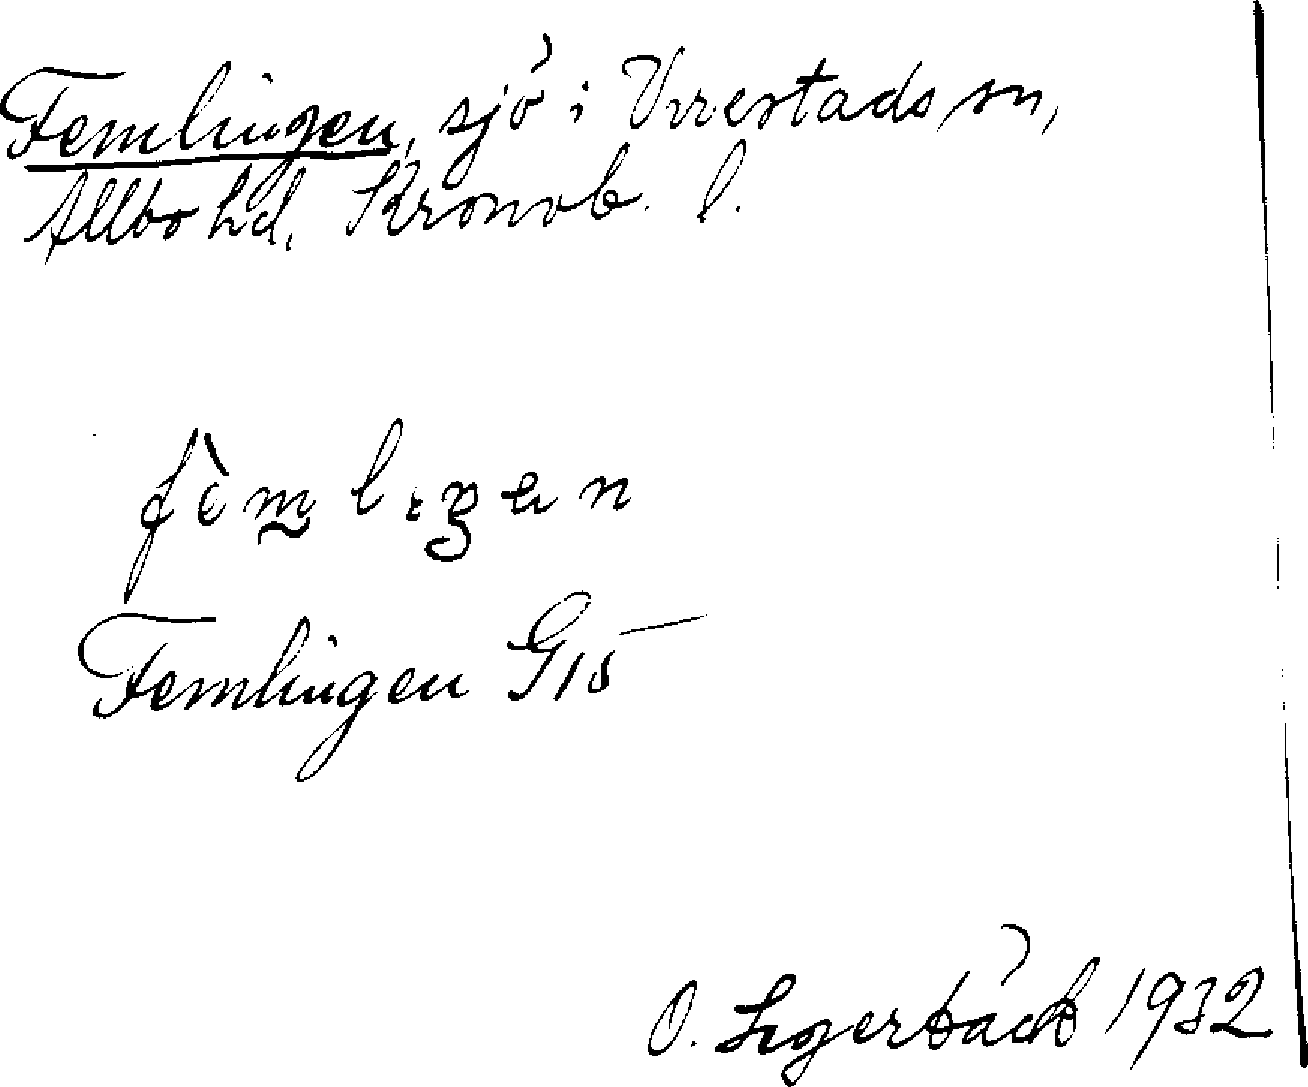 Femlingen, sjö i Virestads sn,
Allbo hd, Kronob. l.
Femlingen G15
O. Lagerbäck 1932